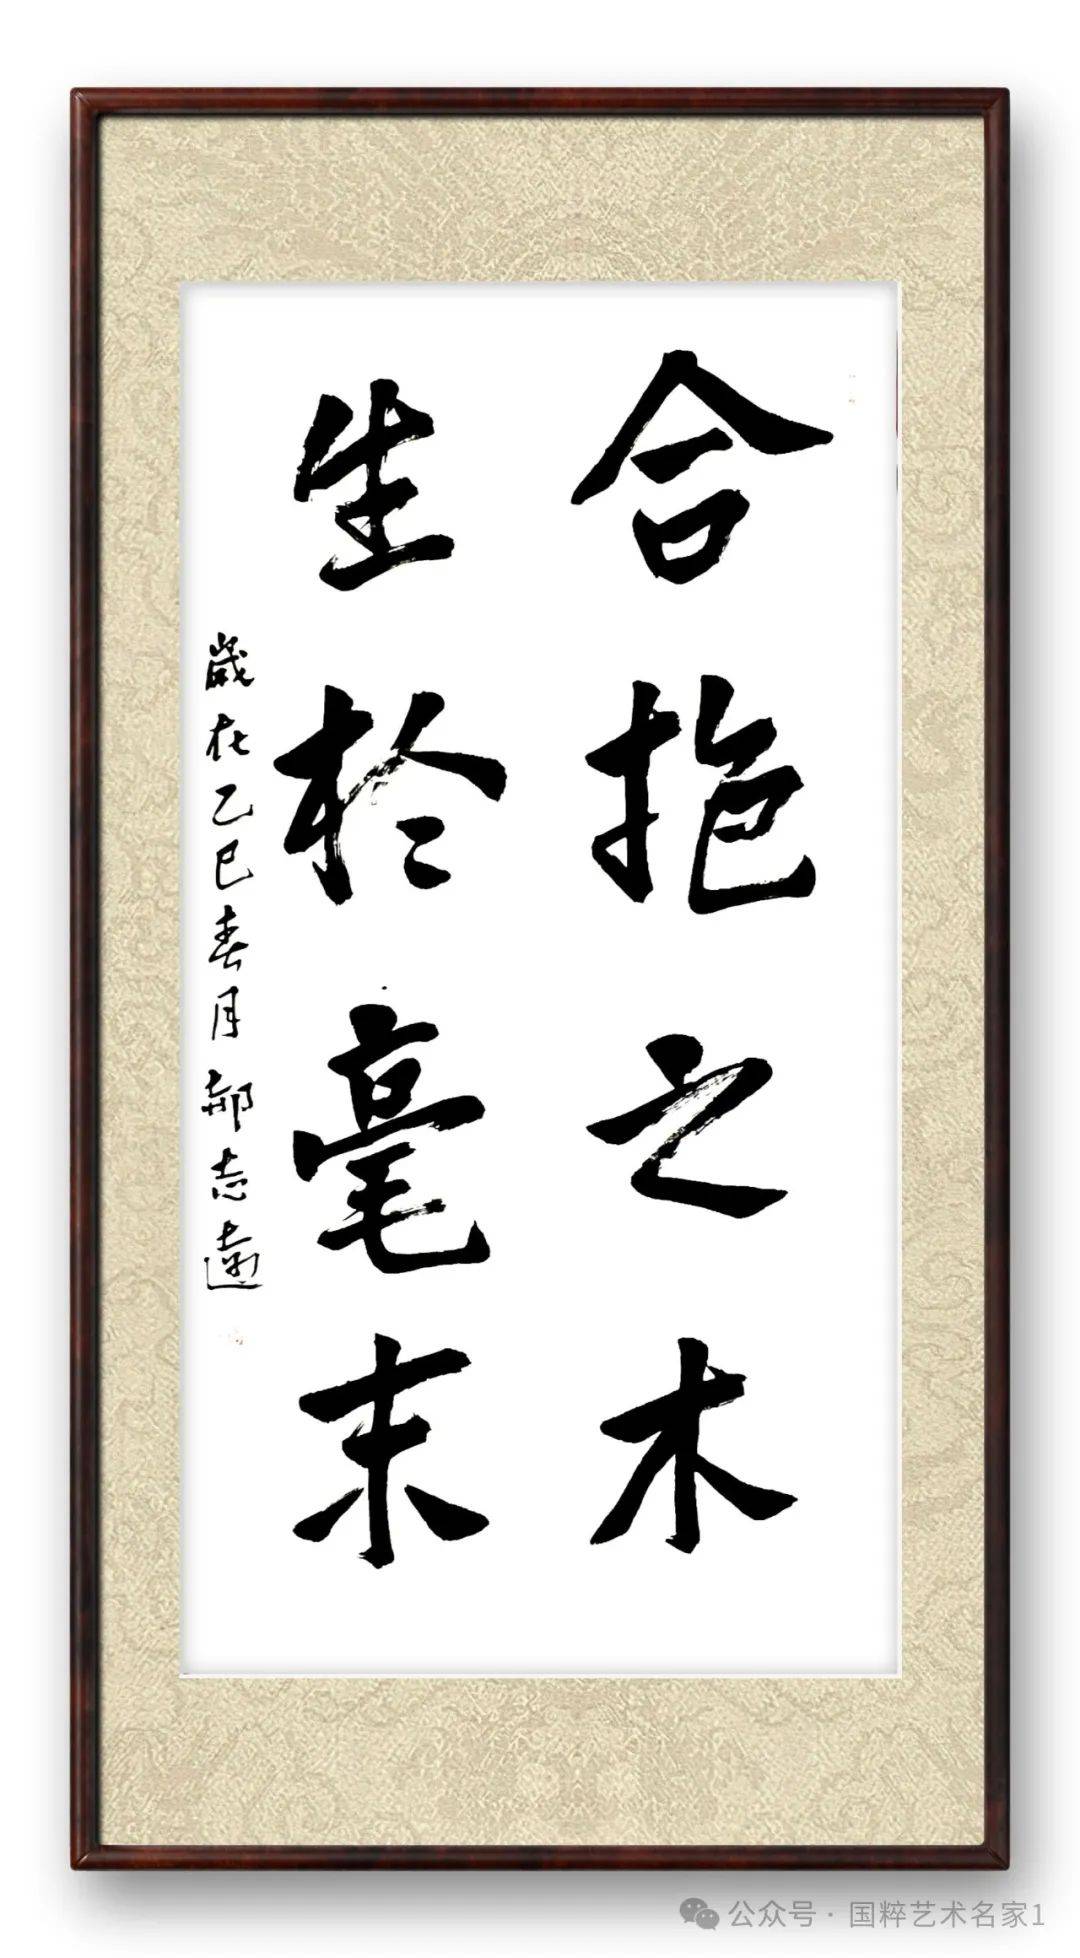 合抱之木
生於毫末
歲在乙巳春月郝志遠
公众号·国粹艺术名家1